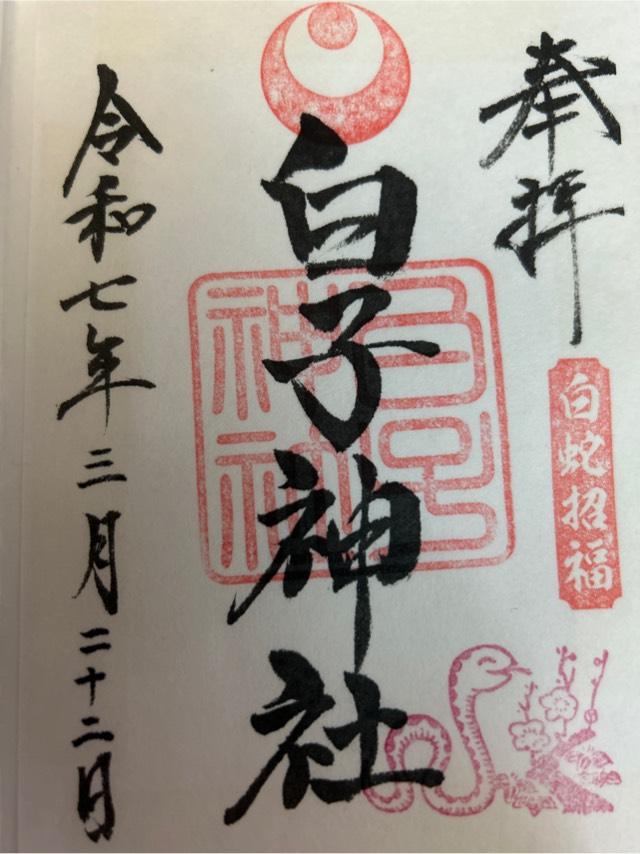 奉拝
白蛇招福
白子神社
白子神社
令和七年三月二十二日